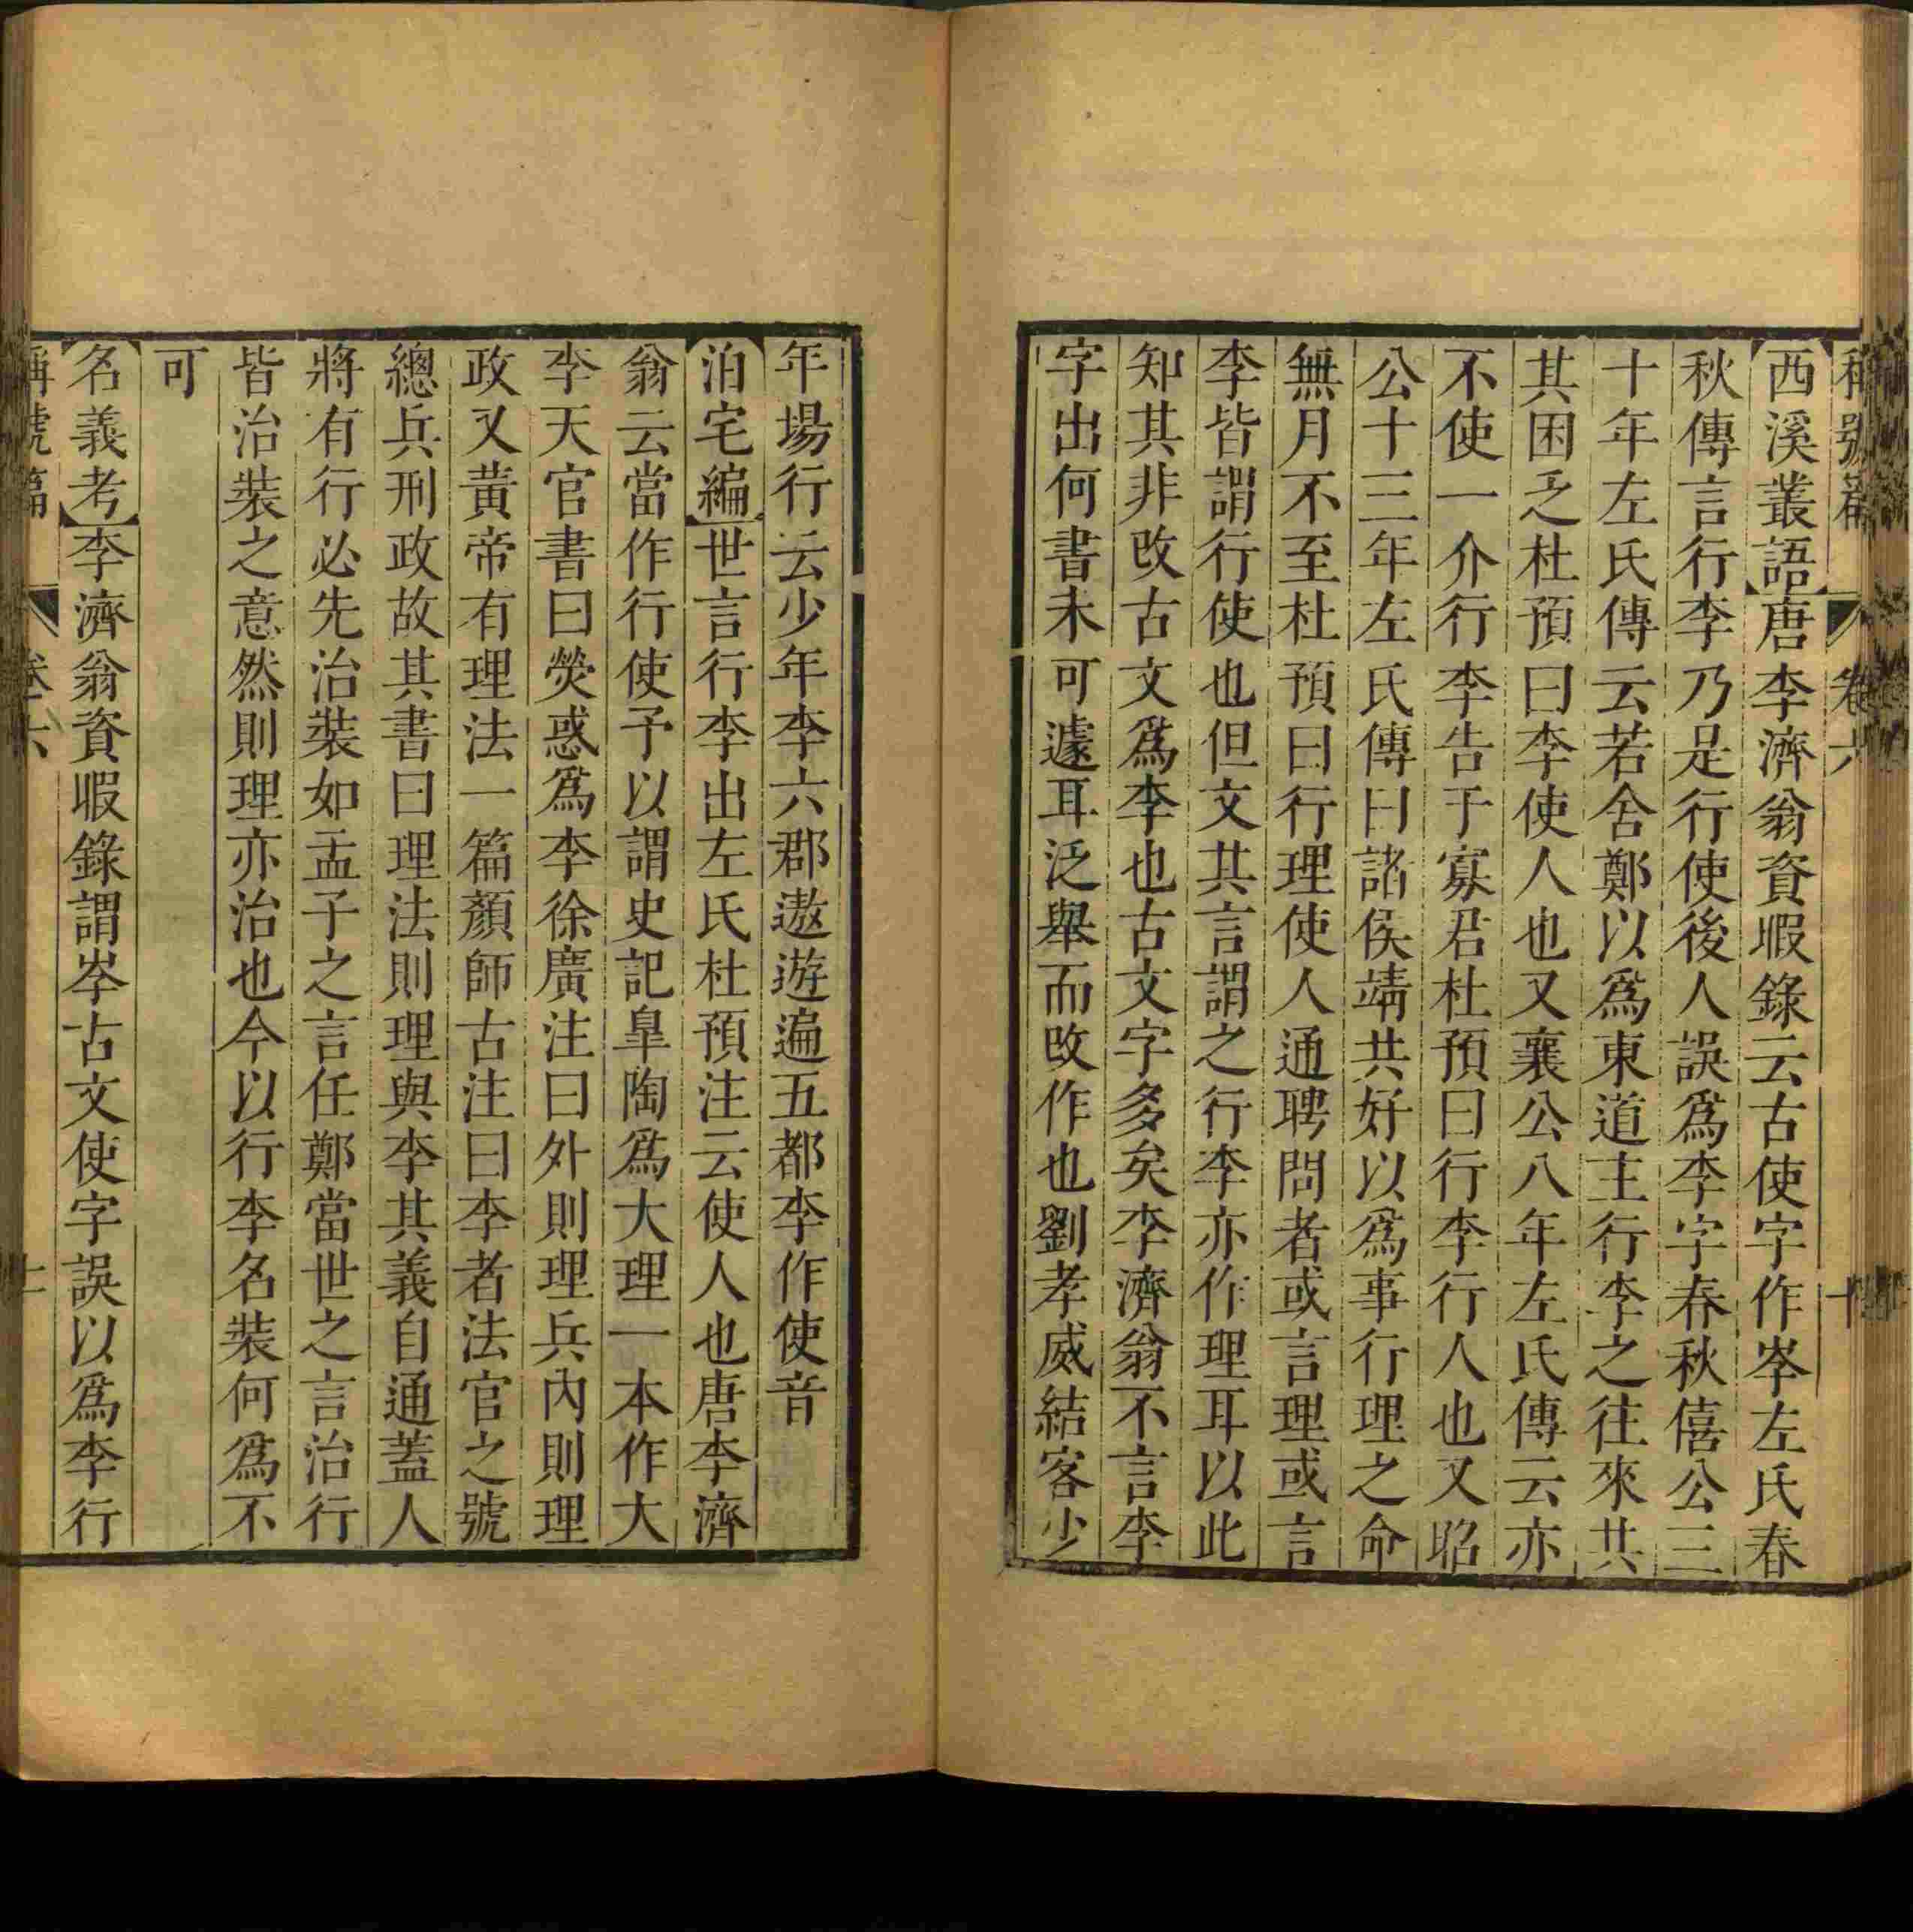 稱號篇 卷六 十
西溪叢語唐李濟翁資暇錄云古使字作岺左氏春
秋傳言行李乃是行使後人誤爲李字春秋僖公三
十年左氏傳云若舍鄭以爲東道主行李之往來共
其困乏杜預曰李使人也又襄公八年左氏傳云亦
不使一介行李告于寡君杜預曰行李行人也又昭
公十三年左氏傳曰諸侯靖共好以爲事行理之命
無月不至杜預曰行理使人通聘問者或言理或言
李皆謂行使也但文其言謂之行李亦作理耳以此
知其非改古文爲李也古文字多矣李濟翁不言李
字出何書未可遽耳泛舉而改作也劉孝威結客少
年場行云少年李六郡遨遊遍五都李作使音
泊宅編世言行李出左氏杜預注云使人也唐李濟
翁云當作行使予以謂史記臯陶爲大理一本作大
李天官書曰熒惑爲李徐廣注曰外則理兵內則理
政又黄帝有理法一篇顏師古注曰李者法官之號
總兵刑政故其書曰理法則理與李其義自通蓋人
將有行必先治裝如孟子之言任鄭當世之言治行
皆治裝之意然則理亦治也今以行李名裝何爲不
可
名義考李濟翁資暇錄謂岺古文使字誤以爲李行
稱號篇 卷六 十